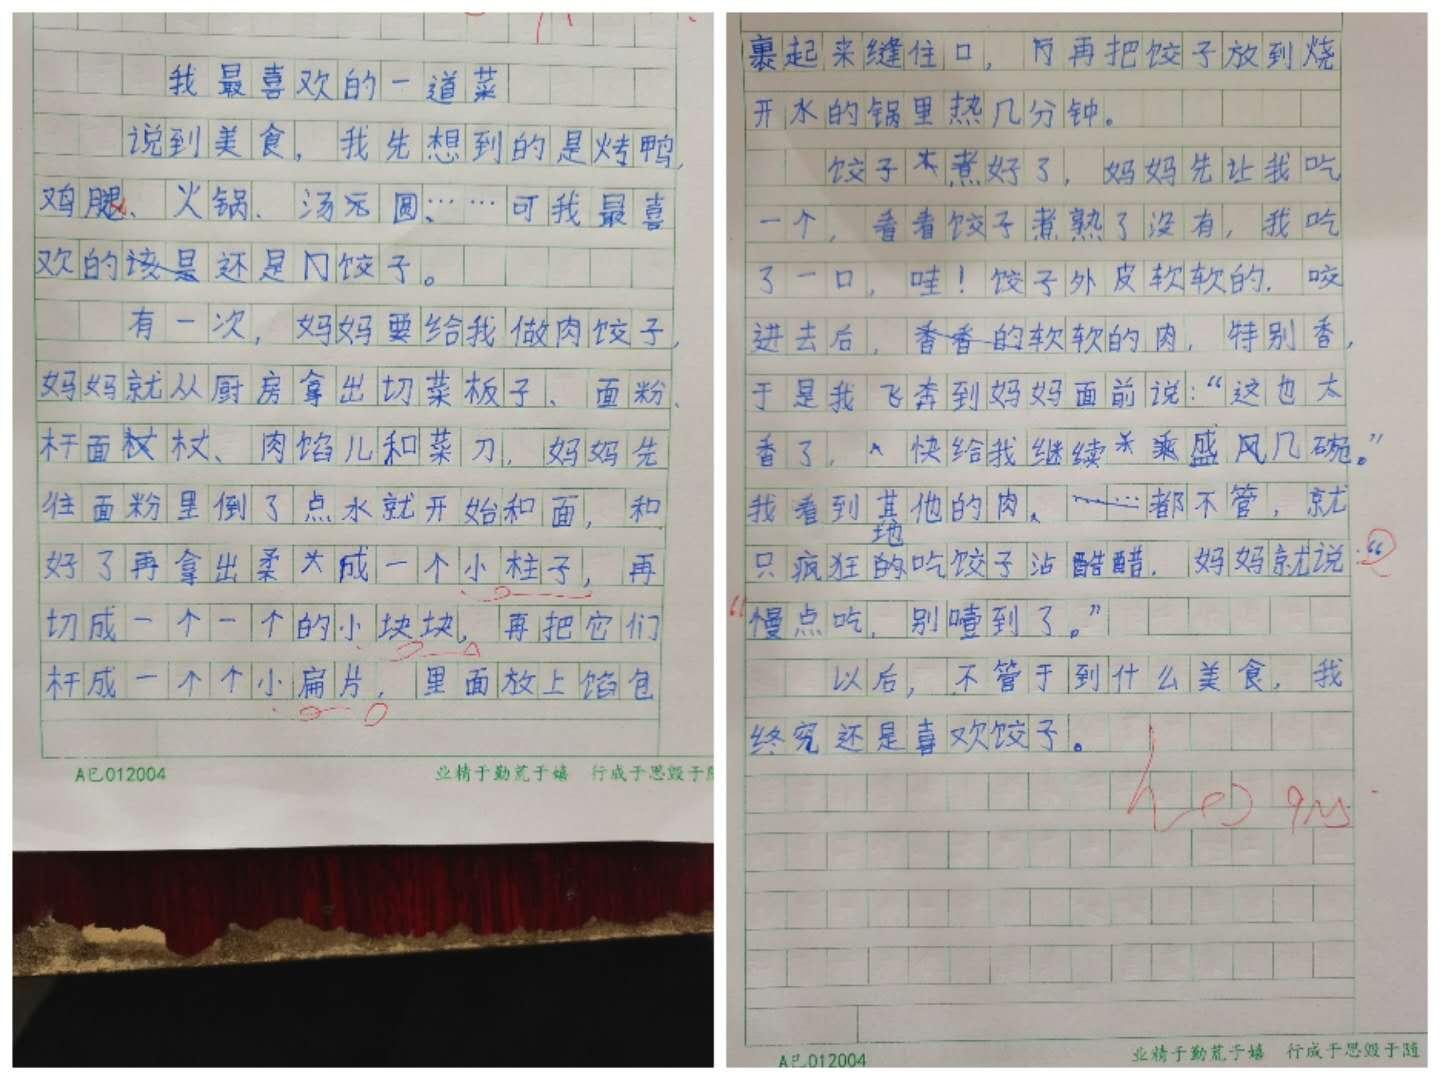 我最喜欢的一道菜
说到美食，我先想到的是烤鸭，
鸡腿、火锅、汤元圆、……可我最喜
欢的还是饺子。
有一次，妈妈要给我做肉饺子，
妈妈就从厨房拿出切菜板子、面粉、
杆面杖、肉馅儿和菜刀，妈妈先
往面粉里倒了点水就开始和面，和
好了再拿出柔成一个小柱子，再
切成一个一个的小块块，再把它们
杆成一个个小扁片，里面放上馅包
A已012004
业精于勤荒于嬉 行成于思毁于随
裹起来缝住口，再把饺子放到烧
开水的锅里热几分钟。
饺子煮好了，妈妈先让我吃
一个，看看饺子煮熟了没有，我吃
了一口，哇！饺子外皮软软的，咬
进去后，软软的肉，特别香，
于是我飞奔到妈妈面前说：“这也太
香了，快给我继续盛几碗。”
我看到其他的肉、都不管，就
只疯狂地吃饺子沾醋，妈妈就说：“
“慢点吃，别噎到了。”
以后，不管于到什么美食，我
终究还是喜欢饺子。
A已012004
业精于勤荒于嬉 行成于思毁于随